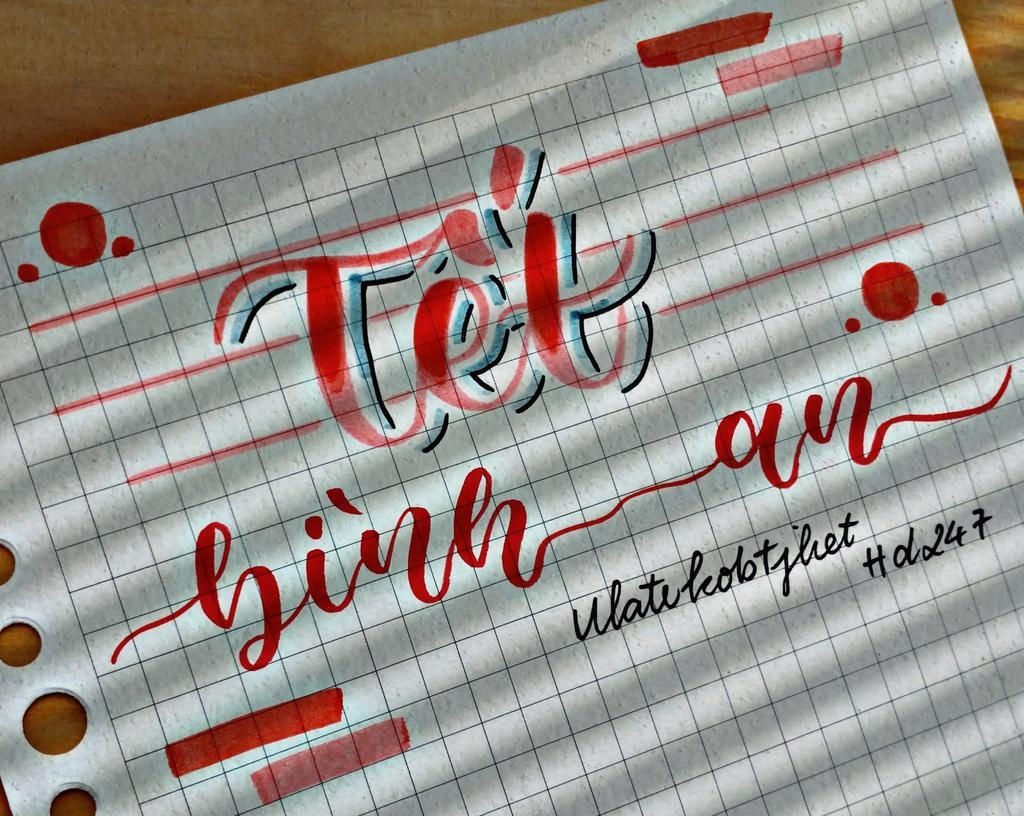 Tết
bình an
Ulatukobtjhet
Hd247